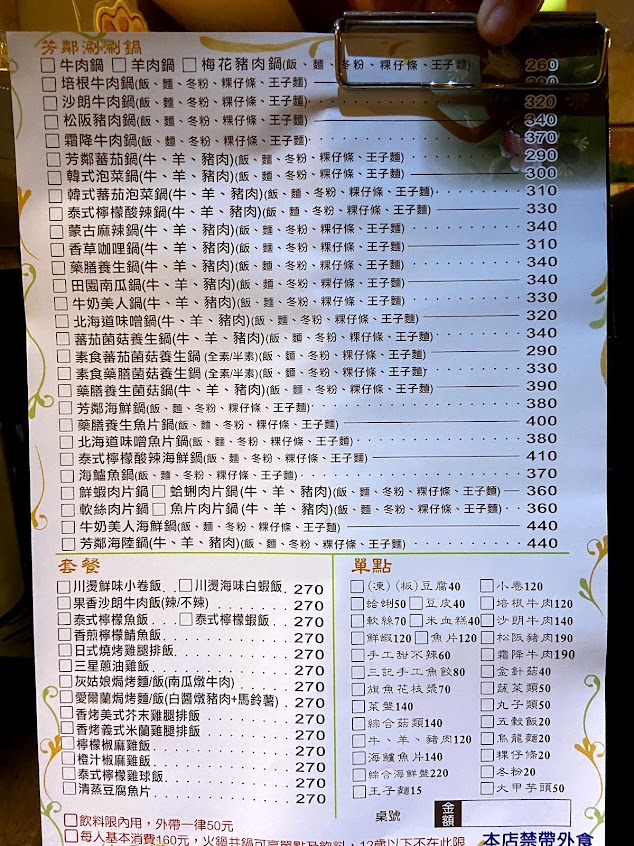 芳鄰涮涮鍋
□牛肉鍋 □羊肉鍋 □梅花豬肉鍋(飯、麵、冬粉、粿仔條、王子麵) 260
□培根牛肉鍋(飯、麵、冬粉、粿仔條、王子麵)
□沙朗牛肉鍋(飯、麵、冬粉、粿仔條、王子麵) 320
□松阪豬肉鍋(飯、麵、冬粉、粿仔條、王子麵) 340
□霜降牛肉鍋(飯、麵、冬粉、粿仔條、王子麵) 370
□芳鄰蕃茄鍋(牛、羊、豬肉)(飯、麵、冬粉、粿仔條、王子麵) 290
□韓式泡菜鍋(牛、羊、豬肉)(飯、麵、冬粉、粿仔條、王子麵) 300
□韓式蕃茄泡菜鍋(牛、羊、豬肉)(飯、麵、冬粉、粿仔條、王子麵) 310
□泰式檸檬酸辣鍋(牛、羊、豬肉)(飯、麵、冬粉、粿仔條、王子麵) 330
□蒙古麻辣鍋(牛、羊、豬肉)(飯、麵、冬粉、粿仔條、王子麵) 340
□香草咖哩鍋(牛、羊、豬肉)(飯、麵、冬粉、粿仔條、王子麵) 310
□藥膳養生鍋(牛、羊、豬肉)(飯、麵、冬粉、粿仔條、王子麵) 340
□田園南瓜鍋(牛、羊、豬肉)(飯、麵、冬粉、粿仔條、王子麵) 340
□牛奶美人鍋(牛、羊、豬肉)(飯、麵、冬粉、粿仔條、王子麵) 330
□北海道味噌鍋(牛、羊、豬肉)(飯、麵、冬粉、粿仔條、王子麵) 320
□蕃茄菌菇養生鍋(牛、羊、豬肉)(飯、麵、冬粉、粿仔條、王子麵) 340
□素食蕃茄菌菇養生鍋(全素/半素)(飯、麵、冬粉、粿仔條、王子麵) 290
□素食藥膳菌菇養生鍋(全素/半素)(飯、麵、冬粉、粿仔條、王子麵) 330
□藥膳養生菌菇鍋(牛、羊、豬肉)(飯、麵、冬粉、粿仔條、王子麵) 390
□芳鄰海鮮鍋(飯、麵、冬粉、粿仔條、王子麵) 380
□藥膳養生魚片鍋(飯、麵、冬粉、粿仔條、王子麵) 400
□北海道味噌魚片鍋(飯、麵、冬粉、粿仔條、王子麵) 380
□泰式檸檬酸辣海鮮鍋(飯、麵、冬粉、粿仔條、王子麵) 410
□海鱸魚鍋(飯、麵、冬粉、粿仔條、王子麵) 370
□鮮蝦肉片鍋 □蛤蜊肉片鍋(牛、羊、豬肉)(飯、麵、冬粉、粿仔條、王子麵) 360
□軟絲肉片鍋 □魚片肉片鍋(牛、羊、豬肉)(飯、麵、冬粉、粿仔條、王子麵) 360
□牛奶美人海鮮鍋(飯、麵、冬粉、粿仔條、王子麵) 440
□芳鄰海陸鍋(牛、羊、豬肉)(飯、麵、冬粉、粿仔條、王子麵) 440
套餐
□川燙鮮味小卷飯 □川燙海味白蝦飯 270
□果香沙朗牛肉飯(辣/不辣) 270
□泰式檸檬魚飯 □泰式檸檬蝦飯 270
□香煎檸檬鯖魚飯 270
□日式燒烤雞腿排飯 270
□三星蔥油雞飯 270
□灰姑娘焗烤麵/飯(南瓜燉牛肉) 270
□愛爾蘭焗烤麵/飯(白醬燉豬肉+馬鈴薯) 270
□香烤美式芥末雞腿排飯 270
□香烤義式米蘭雞腿排飯 270
□檸檬椒麻雞飯 270
□橙汁椒麻雞飯 270
□泰式檸檬雞球飯 270
□清蒸豆腐魚片 270
單點
□(凍)(板)豆腐40 □小卷120
□蛤蜊50 □豆皮40 □培根牛肉120
□軟絲70 □米血糕40 □沙朗牛肉140
□鮮蝦120 □魚片120 □松阪豬肉190
□手工甜不辣60 □霜降牛肉190
□三記手工魚餃80 □金針菇40
□旗魚花枝漿70 □蔬菜類50
□菜盤140 □丸子類50
□綜合菇類140 □五穀飯20
□牛、羊、豬肉120 □烏龍麵20
□海鱸魚片140 □粿仔條20
□綜合海鮮盤220 □冬粉20
□王子麵15 □大甲芋頭50
桌號 金額
□飲料限內用，外帶一律50元
□每人基本消費160元，火鍋共鍋可享單點及飲料，12歲以下不在此限
本店禁帶外食